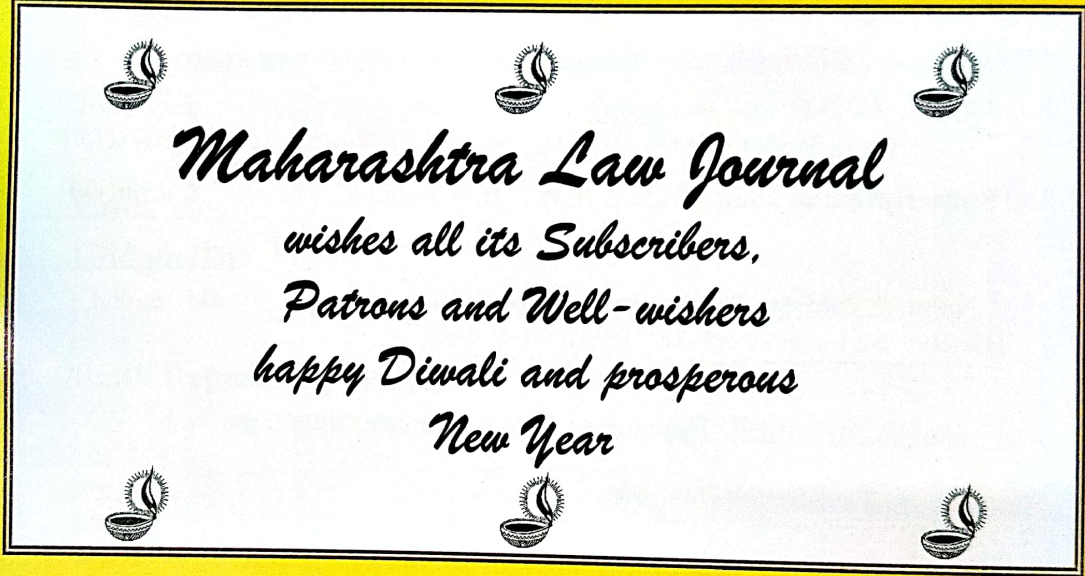 Maharashtra Law Journal
wishes all its Subscribers,
Patrons and Well-wishers
happy Diwali and prosperous
New Year